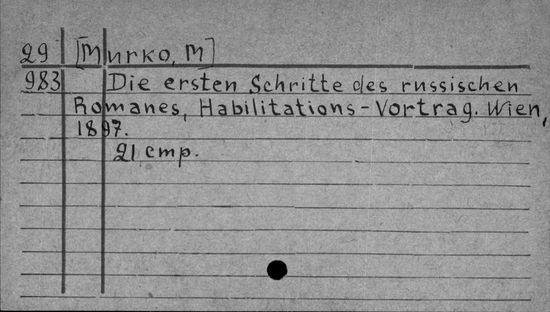 29 [Murko, M]
983 Die ersten Schritte des russischen
Romanes, Habilitations-Vortrag. Wien,
1897.
21 cmp.